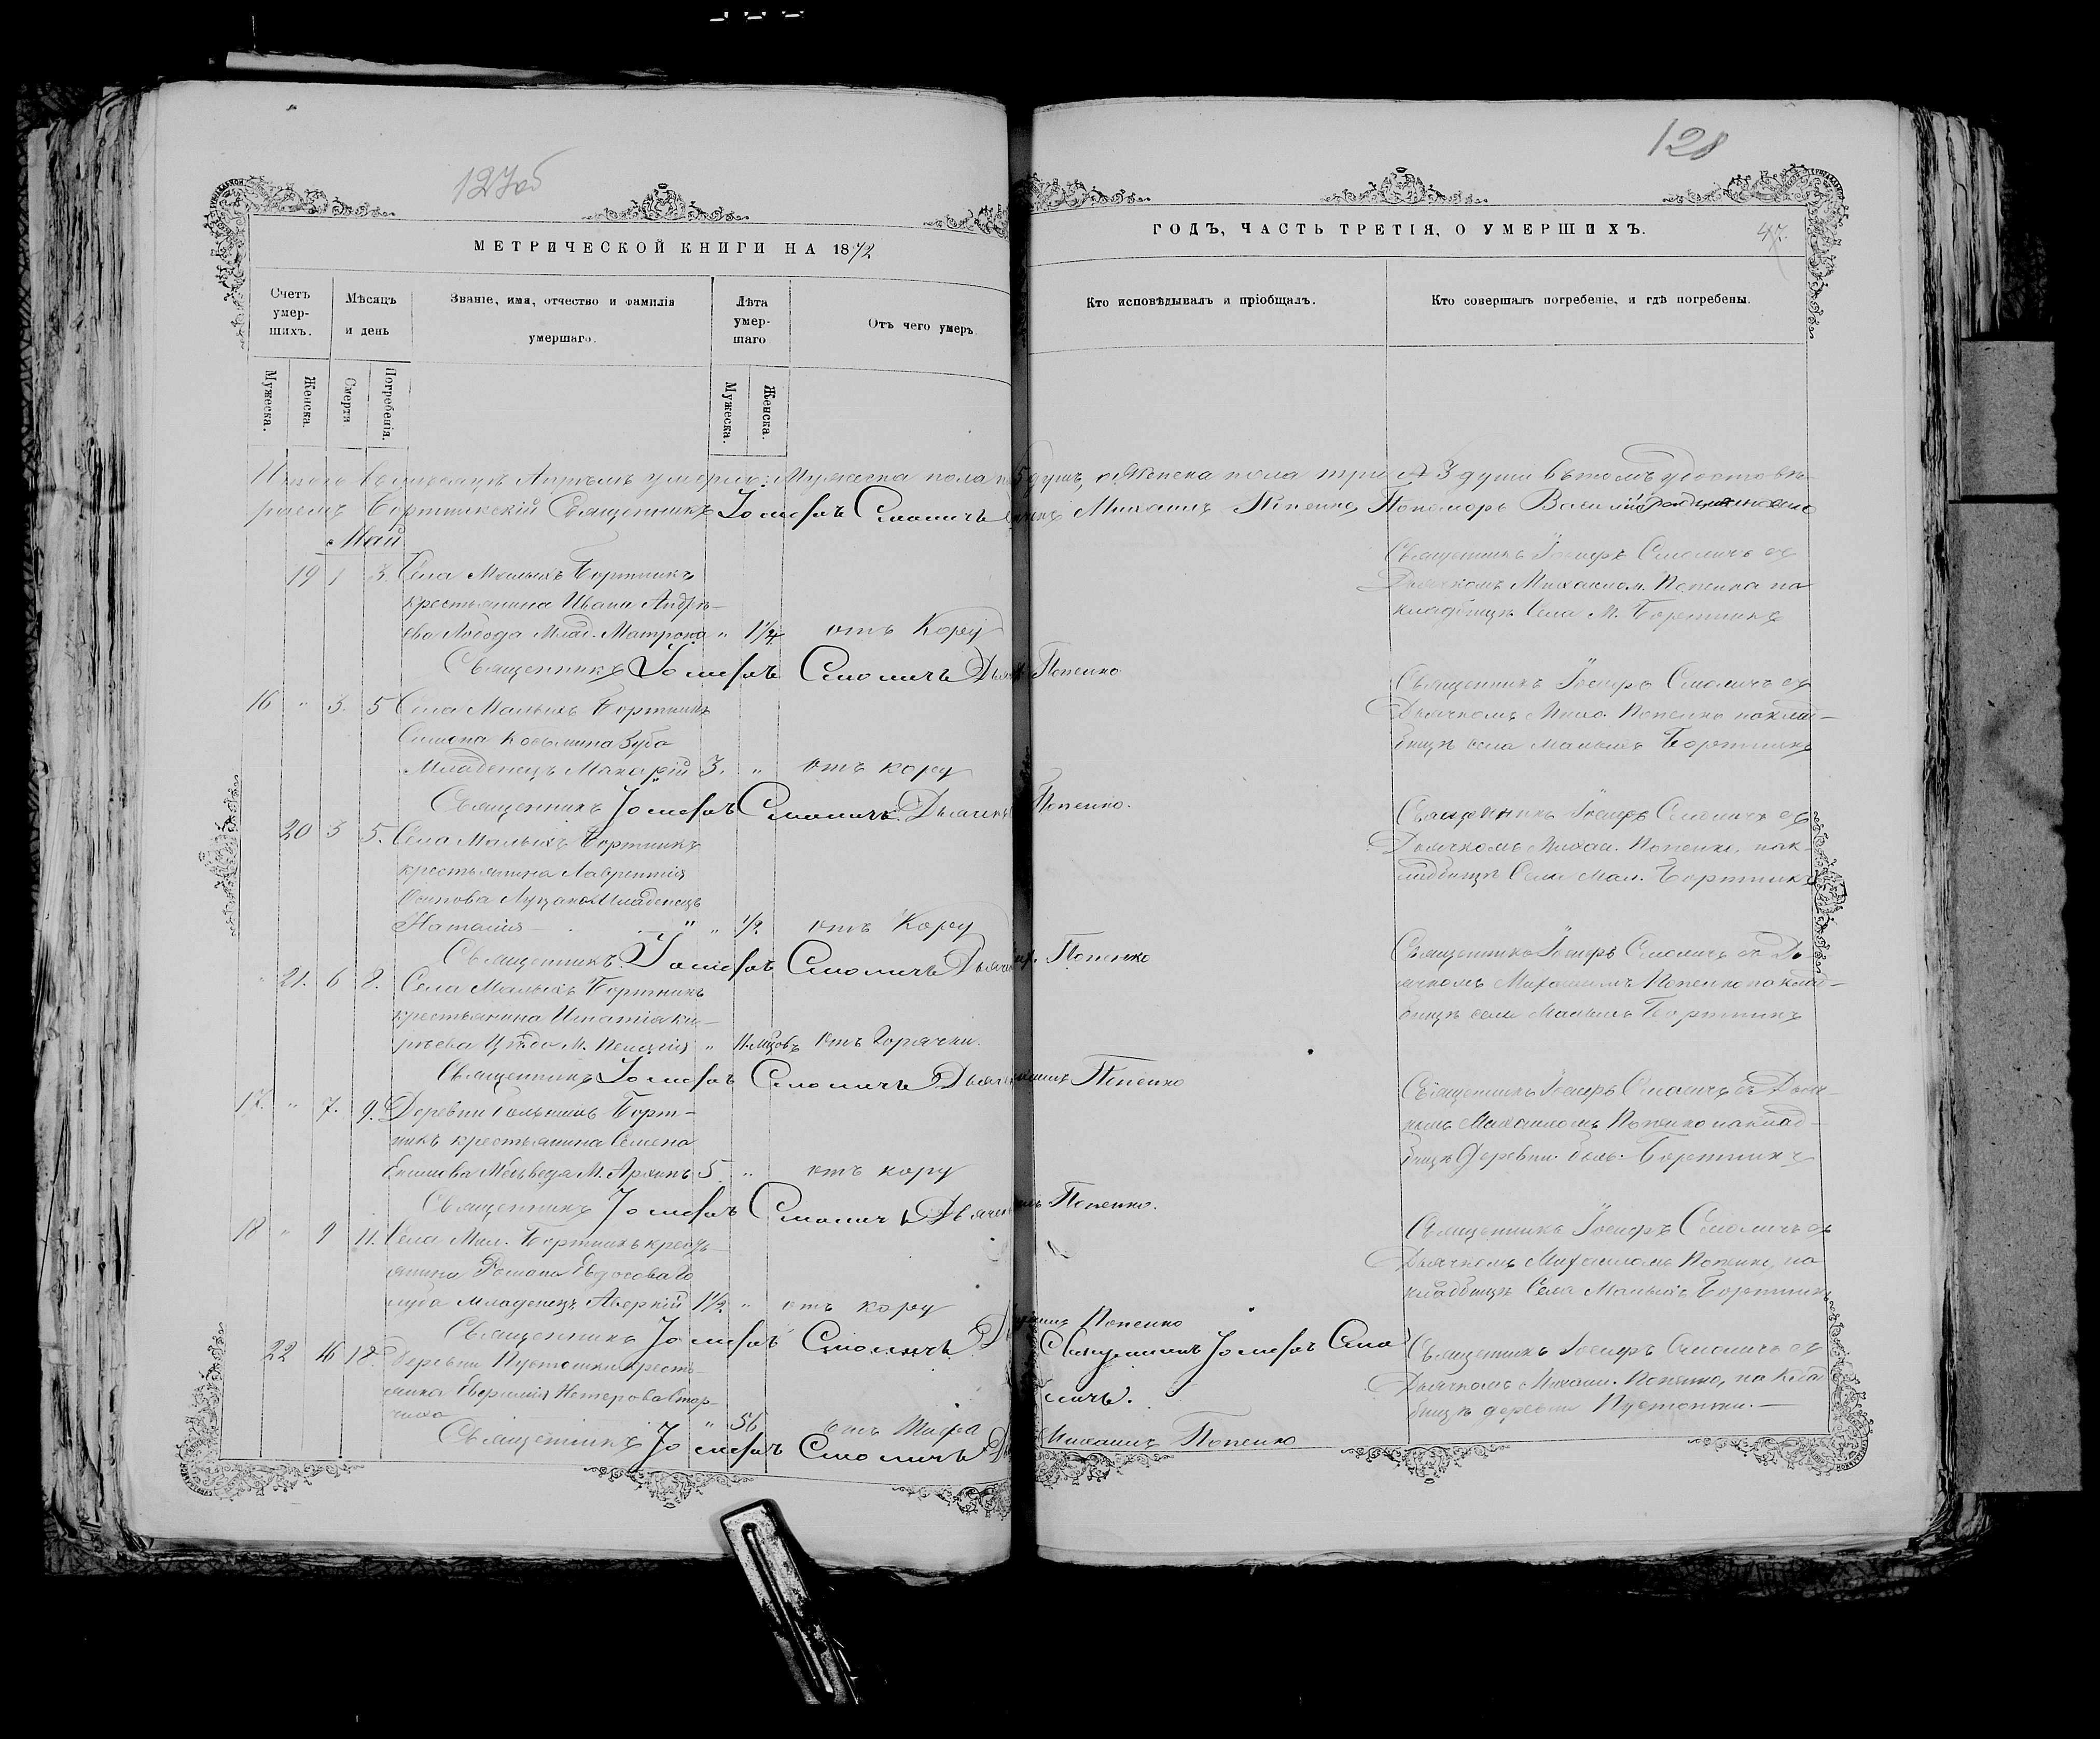 127об
128
МЕТРИЧЕСКОЙ КНИГИ НА 1872
ГОДЪ, ЧАСТЬ ТРЕТІЯ, О УМЕРШИХЪ.
47.
Счетъ умер- шихъ.
Мѣсяцъ и день
Званіе, имя, отчество и фамилія умершаго.
Лѣта умер- шаго
Отъ чего умеръ
Кто исповѣдывалъ и пріобщалъ.
Кто совершалъ погребеніе, и гдѣ погребены.
Мужеска.
Женска.
Смерти.
Погребенія.
Мужеска.
Женска.
Итого въ месяцѣ Апрѣлѣ умерло: Мужеска пола 5 душъ, а Женска пола три 3 души въ томъ удостовѣ-
ряемъ Бортникскій Священникъ Іосифъ Смоличъ Михаилъ Попенко, Пономарь Василій
Май
19 1 3. Села Малыхъ Бортникъ
крестьянина Ивана Андрѣ-
ева Лобода Млад. Матрона " 1¼ отъ Кору
Священникъ Іосифъ Смоличъ Попенко
Священникъ Іосифъ Смоличъ съ
Дьячкомъ Михаилом. Попенко на
кладбищѣ Села М. Бортникъ
16 " 3. 5 Села Малыхъ Бортникъ
Зуба
Младенецъ Макарій 3. " отъ кору
Священникъ Іосифъ Смоличъ. Дьячекъ Попенко.
Священникъ Іосифъ Смоличъ съ
Дьячкомъ Миха. Попенко на клад-
бищѣ села Малыхъ Бортникъ
20 3 5. Села Малыхъ Бортникъ
крестьянина Лаврентія
Осипова Младенецъ
Наталія " " 1/2. отъ Кору
Священникъ Іосифъ Смоличъ Попенко
Священникъ Іосифъ Смоличъ съ
Дьячкомъ Михаи. Попенко, на к-
ладбищѣ Села Мал. Бортникъ
21. 6 8. Села Малыхъ Бортникъ
крестьянина Игнатія Ки-
рѣева М. " 11 мцовъ отъ Горячки.
Священникъ Іосифъ Смоличъ Попенко
Священникъ Іосифъ Смоличъ съ Дь-
ячкомъ Михаиломъ Попенко на клад-
бищѣ села Малыхъ Бортникъ
17. " 7. 9. Деревни Большихъ Борт-
никъ крестьянина Семена
Медведя М. Архипъ 5. " отъ кору
Священникъ Іосифъ Смоличъ Попенко.
Священникъ Іосифъ Смоличъ съ Дьяч-
комъ Михаиломъ Попенко на клад-
бищѣ Деревни боль. Бортникъ
18 " 9 11. Села Мал. Бортникъ кресть-
янина Романа Го
луба Младенецъ Аверкій 1½. " отъ кору
Священникъ Іосифъ Смоличъ Попенко
Священникъ Іосифъ Смоличъ съ
Дьячкомъ Михаиломъ Попенко, на
кладбищѣ Села Малыхъ Бортникъ
22 16 18. Деревни Пустошки кресть-
янка Нестерова
" 56 отъ Тифа
Священникъ Іосифъ Смо-
личъ.
Священникъ Іосифъ Смоличъ Михаилъ Попенко
Священникъ Іосифъ Смоличъ съ
Дьячкомъ Михаи. Попенко, на Клад
бищѣ деревни Пустошки.